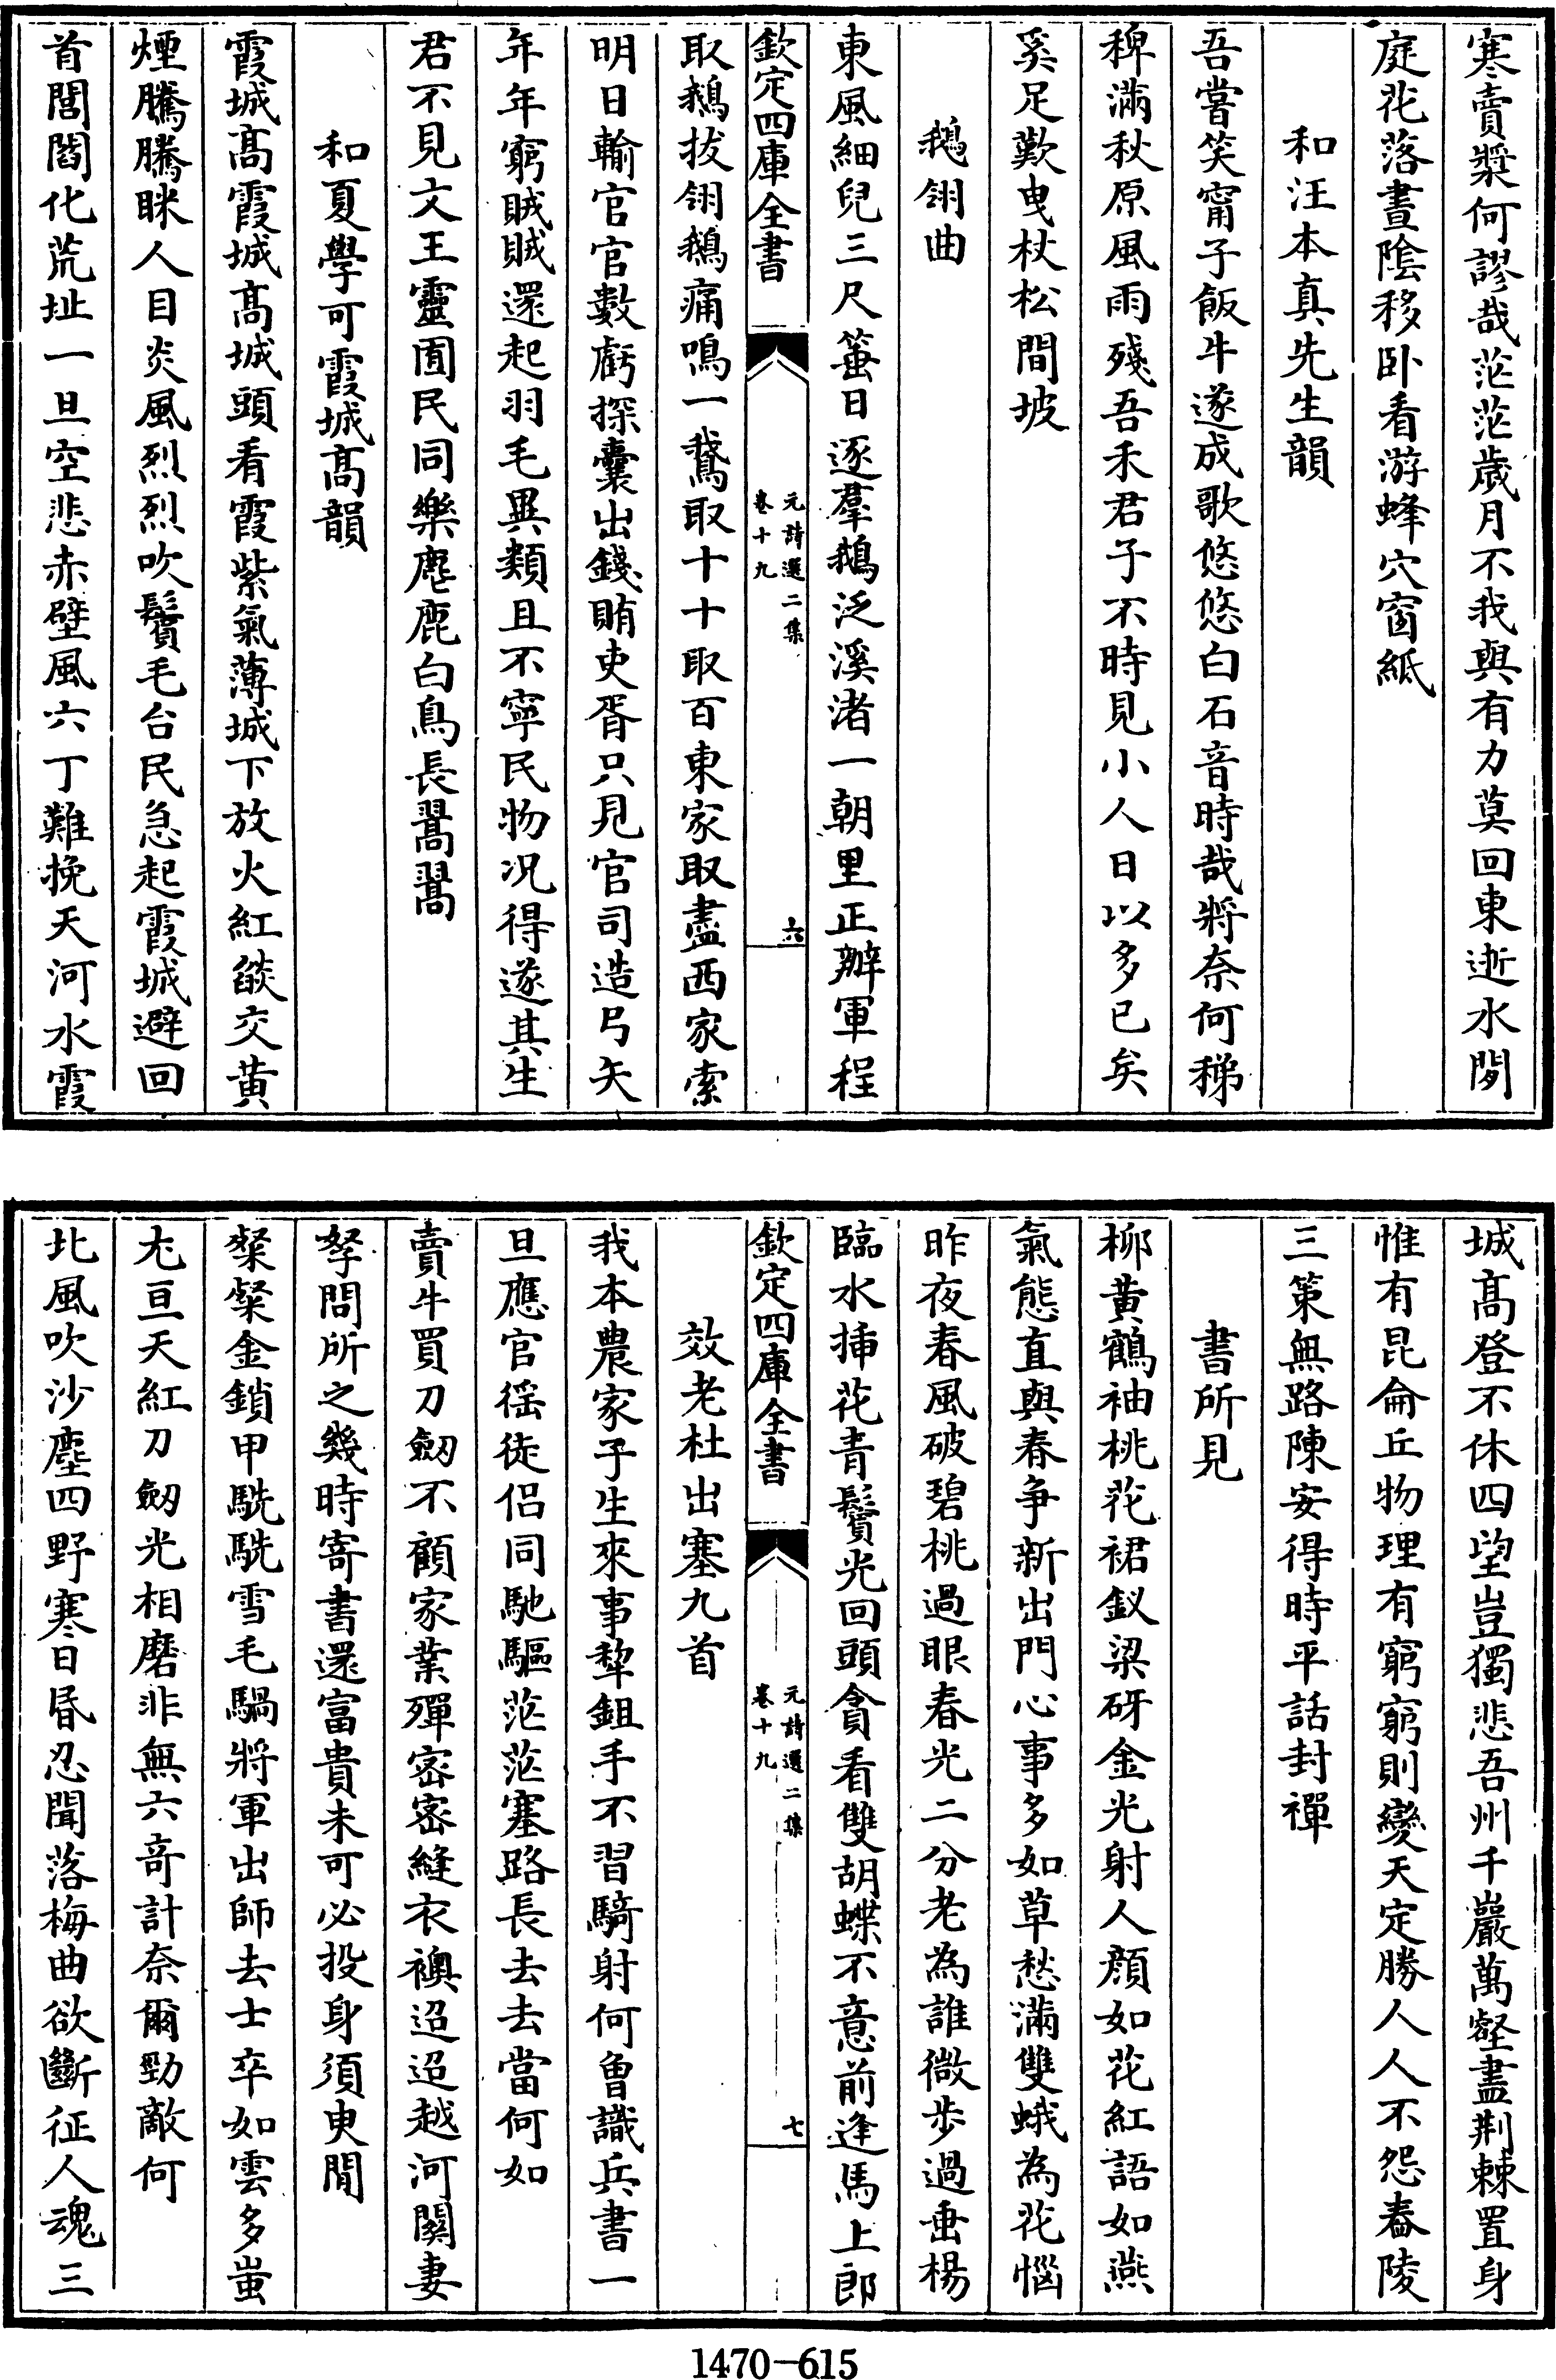 寒賣漿何謬哉茫茫歲月不我與有力莫回東逝水閉
庭花落晝陰移卧看游蜂穴窗紙
和汪本真先生韻
吾嘗笑甯子飯牛遂成歌悠悠白石音時哉將奈何稊
稗滿秋原風雨殘吾禾君子不時見小人日以多已矣
奚足歎曳杖松間坡
鵝翎曲
東風細兒三尺箠日逐羣鵝泛溪渚一朝里正辦軍程
欽定四庫全書
元詩選二集
卷十九
六
取鵝拔翎鵝痛鳴一鵞取十十取百東家取盡西家索
明日輸官官數虧探囊出錢賄吏胥只見官司造弓矢
年年窮賊賊還起羽毛異類且不寧民物况得遂其生
君不見文王靈囿民同樂麀鹿白鳥長翯翯
和夏學可霞城髙韻
霞城髙霞城髙城頭看霞紫氣薄城下放火紅燄交黃
煙騰騰眯人目炎風烈烈吹鬢毛台民急起霞城避回
首閭閻化荒址一旦空悲赤壁風六丁難挽天河水霞
城髙登不休四望豈獨悲吾州千巖萬壑盡荆棘置身
惟有昆侖丘物理有窮窮則變天定勝人人不怨舂陵
三策無路陳安得時平話封禪
書所見
柳黃鶴袖桃花裙釵梁砑金光射人顔如花紅語如燕
氣態直與春争新出門心事多如草愁滿雙蛾為花惱
昨夜春風破碧桃過眼春光二分老為誰微步過垂楊
臨水揷花青鬢光回頭貪看雙胡蝶不意前逢馬上郎
欽定四庫全書
元詩選二集
卷十九
七
效老杜出塞九首
我本農家子生來事犂鉏手不習騎射何曾識兵書一
旦應官徭徒侶同馳驅茫茫塞路長去去當何如
賣牛買刀劒不顧家業殫密密縫衣襖迢迢越河關妻
孥問所之幾時寄書還富貴未可必投身須臾間
粲粲金鎖甲駪駪雪毛騧將軍出師去士卒如雲多蚩
尤亘天紅刀劒光相磨非無六竒計奈爾勁敵何
北風吹沙塵四野寒日昏忍聞落梅曲欲斷征人魂三
1470—615